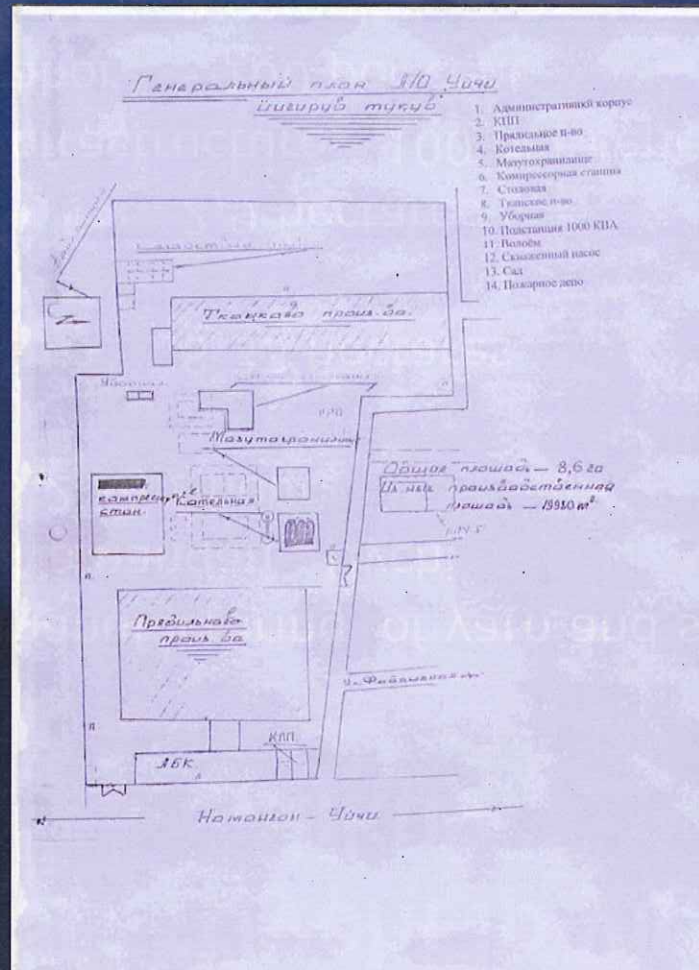 Генеральный план А/О Уйчи
йигирув тукув
1. Административнй корпус
2. КПП
3. Прядильное п-во
4. Котельная
5. Мазутохранилище
6. Компрессорная станция
7. Столовая
8. Ткацкое п-во
9. Уборная
10. Подстанция 1000 КВА
11. Водоём
12. Скваженный насос
13. Сад
14. Пожарное депо
Ткацкаво произ-ва.
Уборная
Мазутохранилище
Общая площадь — 8,6 га
Из них производственная
площадь — 19980 м²
компрессор
стан.
Кательная
Прядильнаво
произ-ва
ул. Фабричная
КПП.
АБК.
Наманган - Уйчи